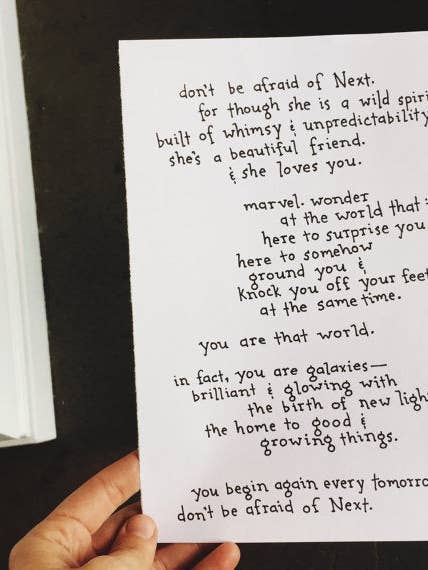 don't be afraid of Next.
for though she is a wild
built of whimsy & unpredictability
she's a beautiful friend.
& she loves you.
marvel. wonder
at the world that
here to surprise you
here to somehow
ground you &
knock you off your feet
at the same time.
you are that world.
in fact, you are galaxies—
brilliant & glowing with
the birth of new
the home to good &
growing things.
you begin again every
don't be afraid of Next.